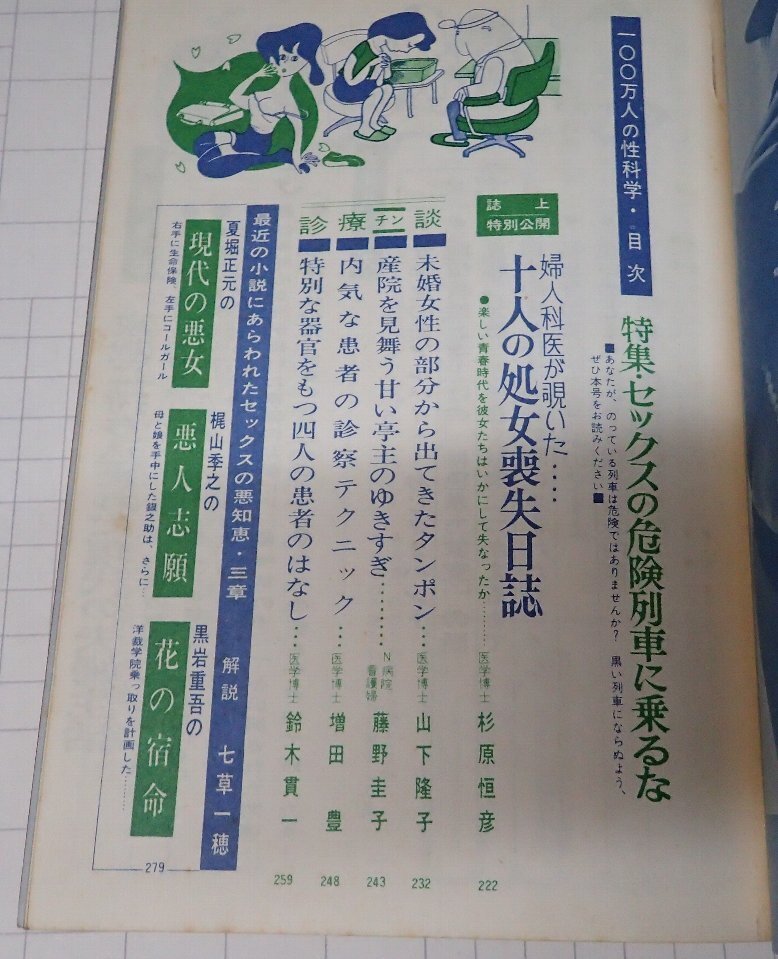 一〇〇万人の性科学・目次
特集・セックスの危険列車に乗るな
■あなたが、のっている列車は危険ではありませんか？　黒い列車にならぬよう、
ぜひ本号をお読みください■
誌上
特別公開
婦人科医が覗いた‥‥
十人の処女喪失日誌
●楽しい青春時代を彼女たちはいかにして失なったか………
医学博士
杉原恒彦
222
診療チン談
未婚女性の部分から出てきたタンポン…
医学博士
山下隆子
232
産院を見舞う甘い亭主のゆきすぎ………
N病院
看護婦
藤野圭子
243
内気な患者の診察テクニック…
医学博士
増田豊
248
特別な器官をもつ四人の患者のはなし…
医学博士
鈴木貫一
259
最近の小説にあらわれたセックスの悪知恵・三章
解説　七草一穂
夏堀正元の
現代の悪女
右手に生命保険、左手にコールガール
梶山季之の
悪人志願
母と娘を手中にした銀之助は、さらに…
黒岩重吾の
花の宿命
洋裁学院乗っ取りを計画した………
279